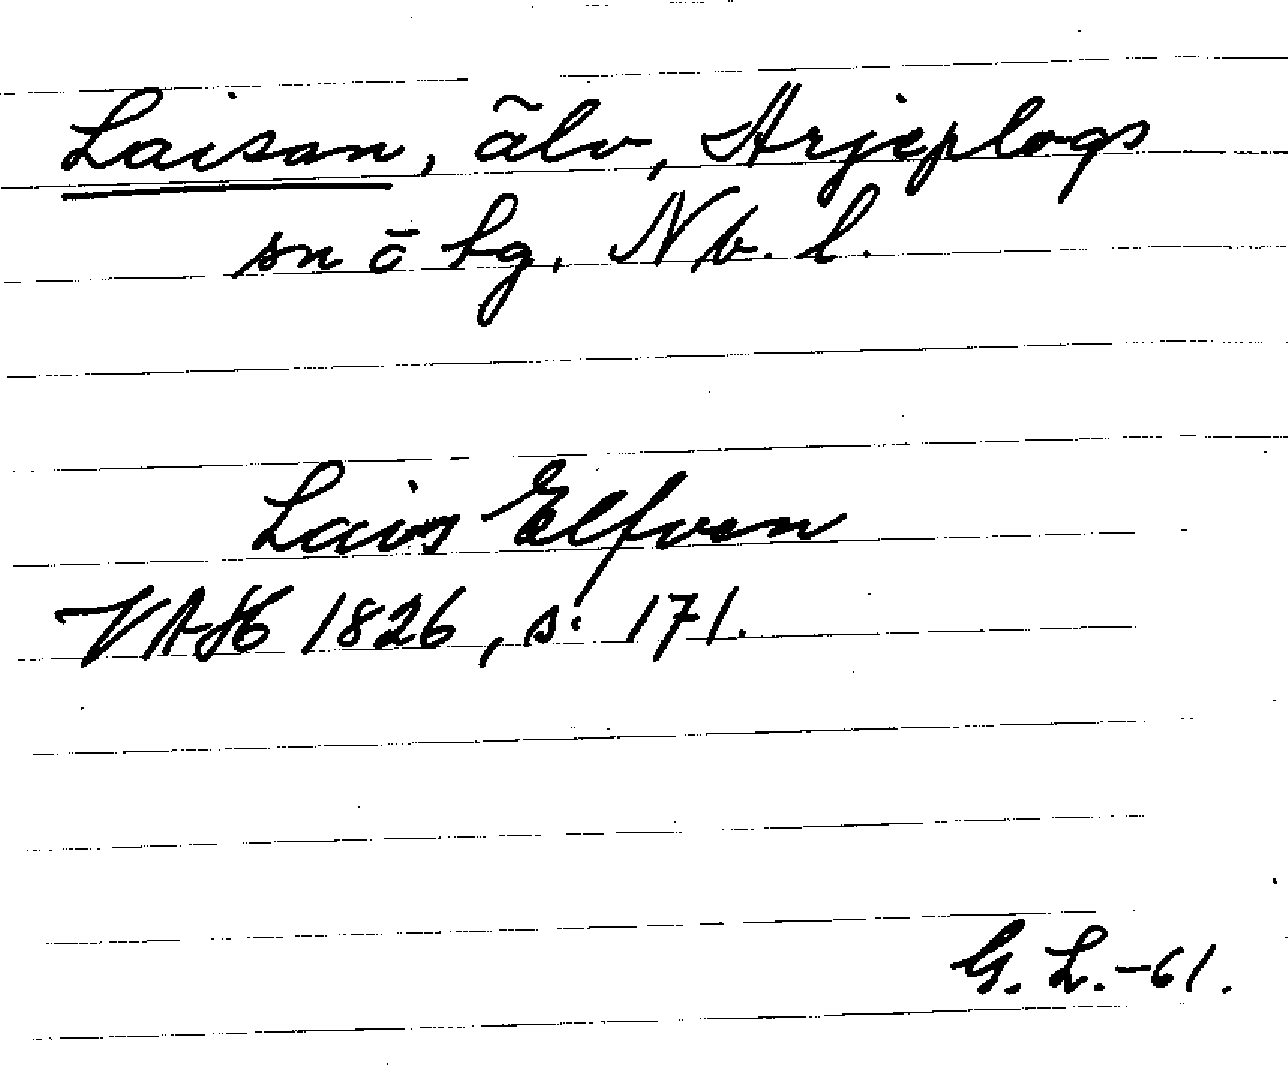 Laisan, älv, Arjeplogs
sn ö hg. Nb. l.
Lais Elfven
VAH 1826, s. 171.
G. L. -61.